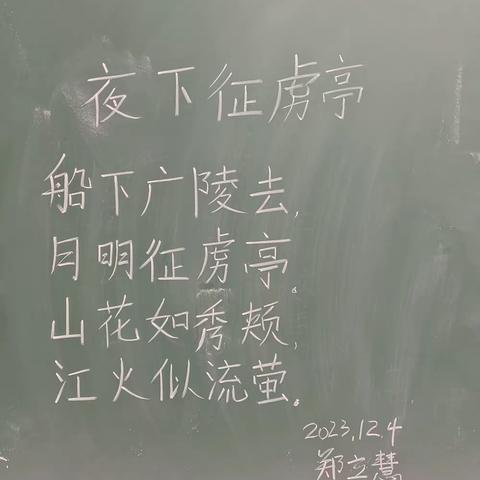 夜下征虏亭
船下广陵去,
月明征虏亭。
山花如秀颊,
江火似流萤。
2023.12.4
郑立慧